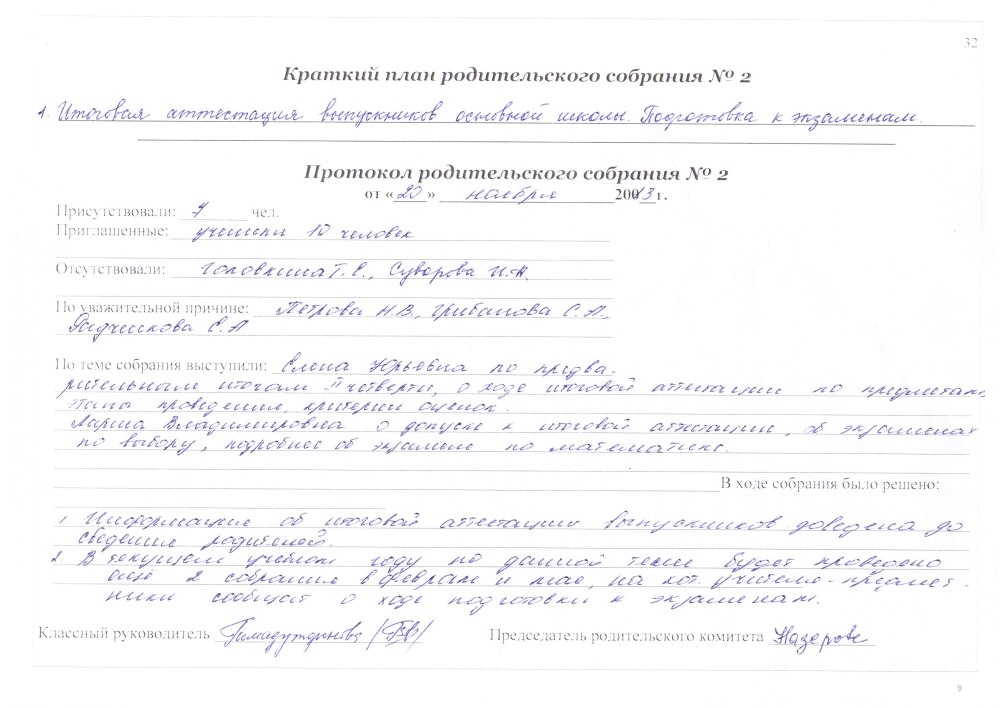 32
Краткий план родительского собрания № 2
1. Итоговая аттестация выпускников основной школы. Подготовка к экзаменам.
Протокол родительского собрания № 2
от «20» ноября 2013 г.
Присутствовали: 7 чел.
Приглашенные: ученики 10 человек
Отсутствовали: Головкина Т. Е., Суворова И. А.
По уважительной причине: Петрова Н.В., Грибанова С.А.,
Радченкова С.А
По теме собрания выступили: Елена Юрьевна по предва-
рительным итогам II четверти, о ходе итоговой аттестации по предметам,
этапы проведения, критерии оценок.
Лариса Владимировна о допуске к итоговой аттестации, об экзаменах
по выбору, подробнее об экзамене по математике.
В ходе собрания было решено:
1 Информация об итоговой аттестации выпускников доведена до
сведения родителей.
2. В текущем учебном году по данной теме будет проведено
ещё 2 собрания в феврале и мае, на кот. учителя-предмет-
ники сообщат о ходе подготовки к экзаменам.
Классный руководитель Председатель родительского комитета Назарова